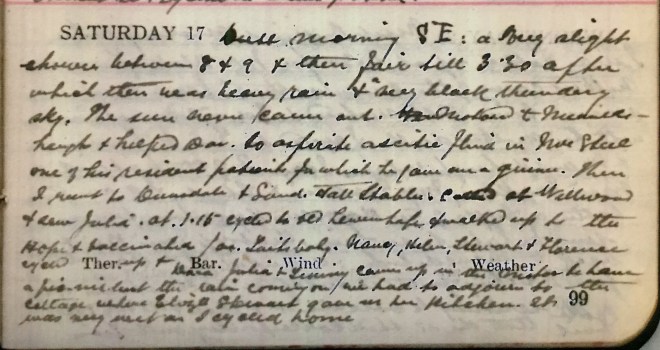 SATURDAY 17 Dull morning SE: a very slight
shower between 8 & 9 & then fair till 3.30 after
which there was heavy rain & very black thundery
sky. The sun never came out. Motored to
& helped Dav. to aspirate ascitic fluid in Mrs
one of his resident patients for which he gave me a guinea. Then
I went to & Sand. Hall Stables. Called at Wellwood
& saw Julia. at 1.15 cycled to & walked up to the
Hope & vaccinated Jas. baby. Nancy, Helen, Stewart & Florence
cycled up & Julia & came up in the to have
Ther. Bar. Wind Weather
a pic-nic but the rain coming on we had to adjourn to the
cottage where Stewart gave us her kitchen. It
99
was very wet as I cycled home